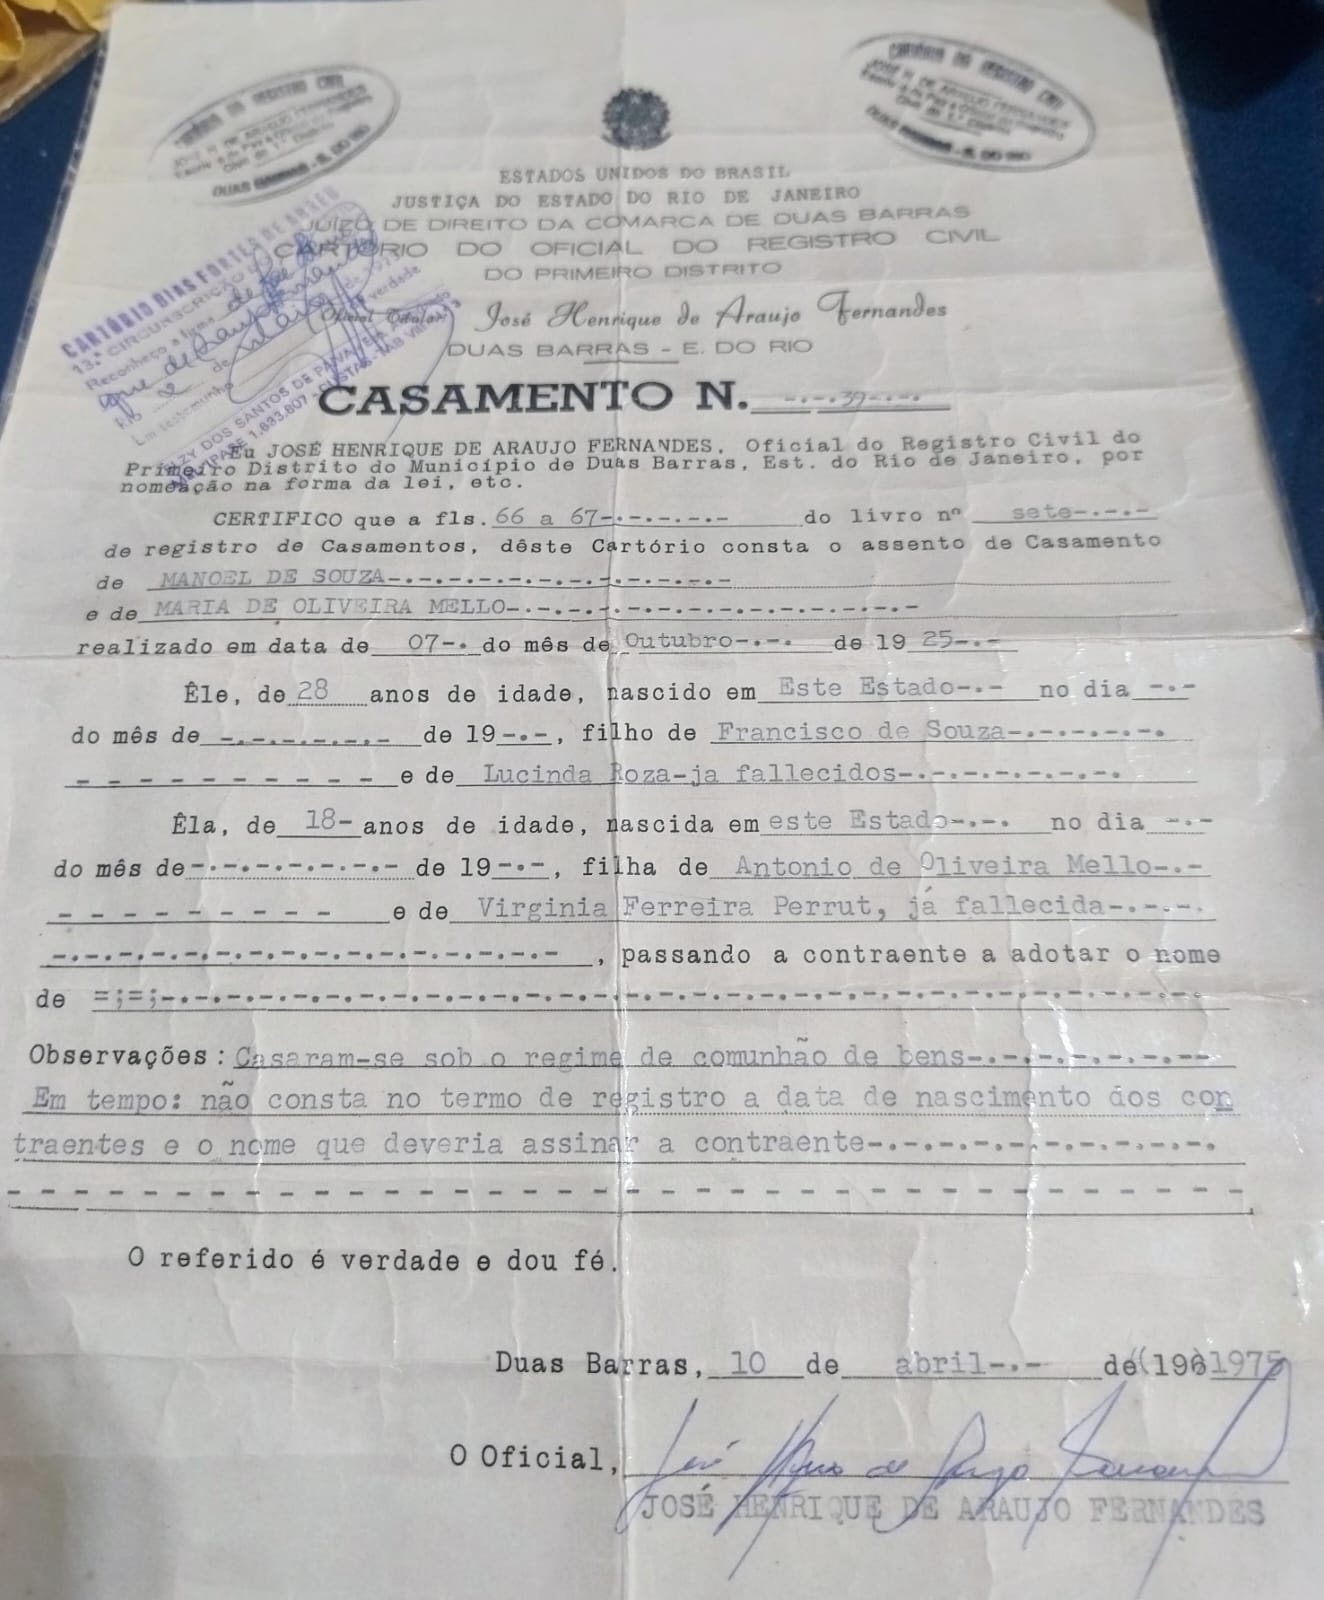 CARTÓRIO DO REGISTRO CIVIL
JOSÉ H. DE ARAUJO FERNANDES
DUAS BARRAS - E. DO RIO
CARTÓRIO DO REGISTRO CIVIL
JOSÉ H. DE ARAUJO FERNANDES
DUAS BARRAS - E. DO RIO
ESTADOS UNIDOS DO BRASIL
JUSTIÇA DO ESTADO DO RIO DE JANEIRO
JUÍZO DE DIREITO DA COMARCA DE DUAS BARRAS
CARTÓRIO DO OFICIAL DO REGISTRO CIVIL
DO PRIMEIRO DISTRITO
Oficial Titular: José Henrique de Araujo Fernandes
DUAS BARRAS - E. DO RIO
CARTÓRIO DIAS FORTES
13.ª CIRCUNSCRIÇÃO
Reconheço a firma de
de
Em testemunho da verdade
DOS SANTOS DE PAIVA
CASAMENTO N. -.-.39-.-.-
Eu JOSÉ HENRIQUE DE ARAUJO FERNANDES, Oficial do Registro Civil do
Primeiro Distrito do Município de Duas Barras, Est. do Rio de Janeiro, por
nomeação na forma da lei, etc.
CERTIFICO que a fls. 66 a 67-.-.-.-.-.- do livro nº sete-.-.-
de registro de Casamentos, dêste Cartório consta o assento de Casamento
de MANOEL DE SOUZA-.-.-.-.-.-.-.-.-.-.-.-.-.-
e de MARIA DE OLIVEIRA MELLO-.-.-.-.-.-.-.-.-.-.-.-.-.-.-.-
realizado em data de 07-. do mês de Outubro-.-. de 19 25-.-
Êle, de 28 anos de idade, nascido em Este Estado-.- no dia -.-
do mês de -.-.-.-.-.-.- de 19-.-, filho de Francisco de Souza-.-.-.-.-.
- - - - - - - - - - - e de Lucinda Roza-ja fallecidos-.-.-.-.-.-.
Êla, de 18- anos de idade, nascida em este Estado-.-. no dia -.-
do mês de-.-.-.-.-.-.-.- de 19-.-, filha de Antonio de Oliveira Mello-.-
- - - - - - - - - - e de Virginia Ferreira Perrut, já fallecida-.-.-.
-.-.-.-.-.-.-.-.-.-.-.-.-.-.-.-.-.-, passando a contraente a adotar o nome
de =;=;-.-.-.-.-.-.-.-.-.-.-.-.-.-.-.-.-.-.-.-.-.-.-.-.-.-.-.-.-.-.-.-.
Observações: Casaram-se sob o regime de comunhão de bens-.-.-.-.-.-.--
Em tempo: não consta no termo de registro a data de nascimento dos con
traentes e o nome que deveria assinar a contraente-.-.-.-.-.-.-.-.-.-.
- - - - - - - - - - - - - - - - - - - - - - - - - - - - - - - - - - - -
O referido é verdade e dou fé.
Duas Barras, 10 de abril-.- de (196 1975
O Oficial, José Henrique de Araujo Fernandes
JOSÉ HENRIQUE DE ARAUJO FERNANDES